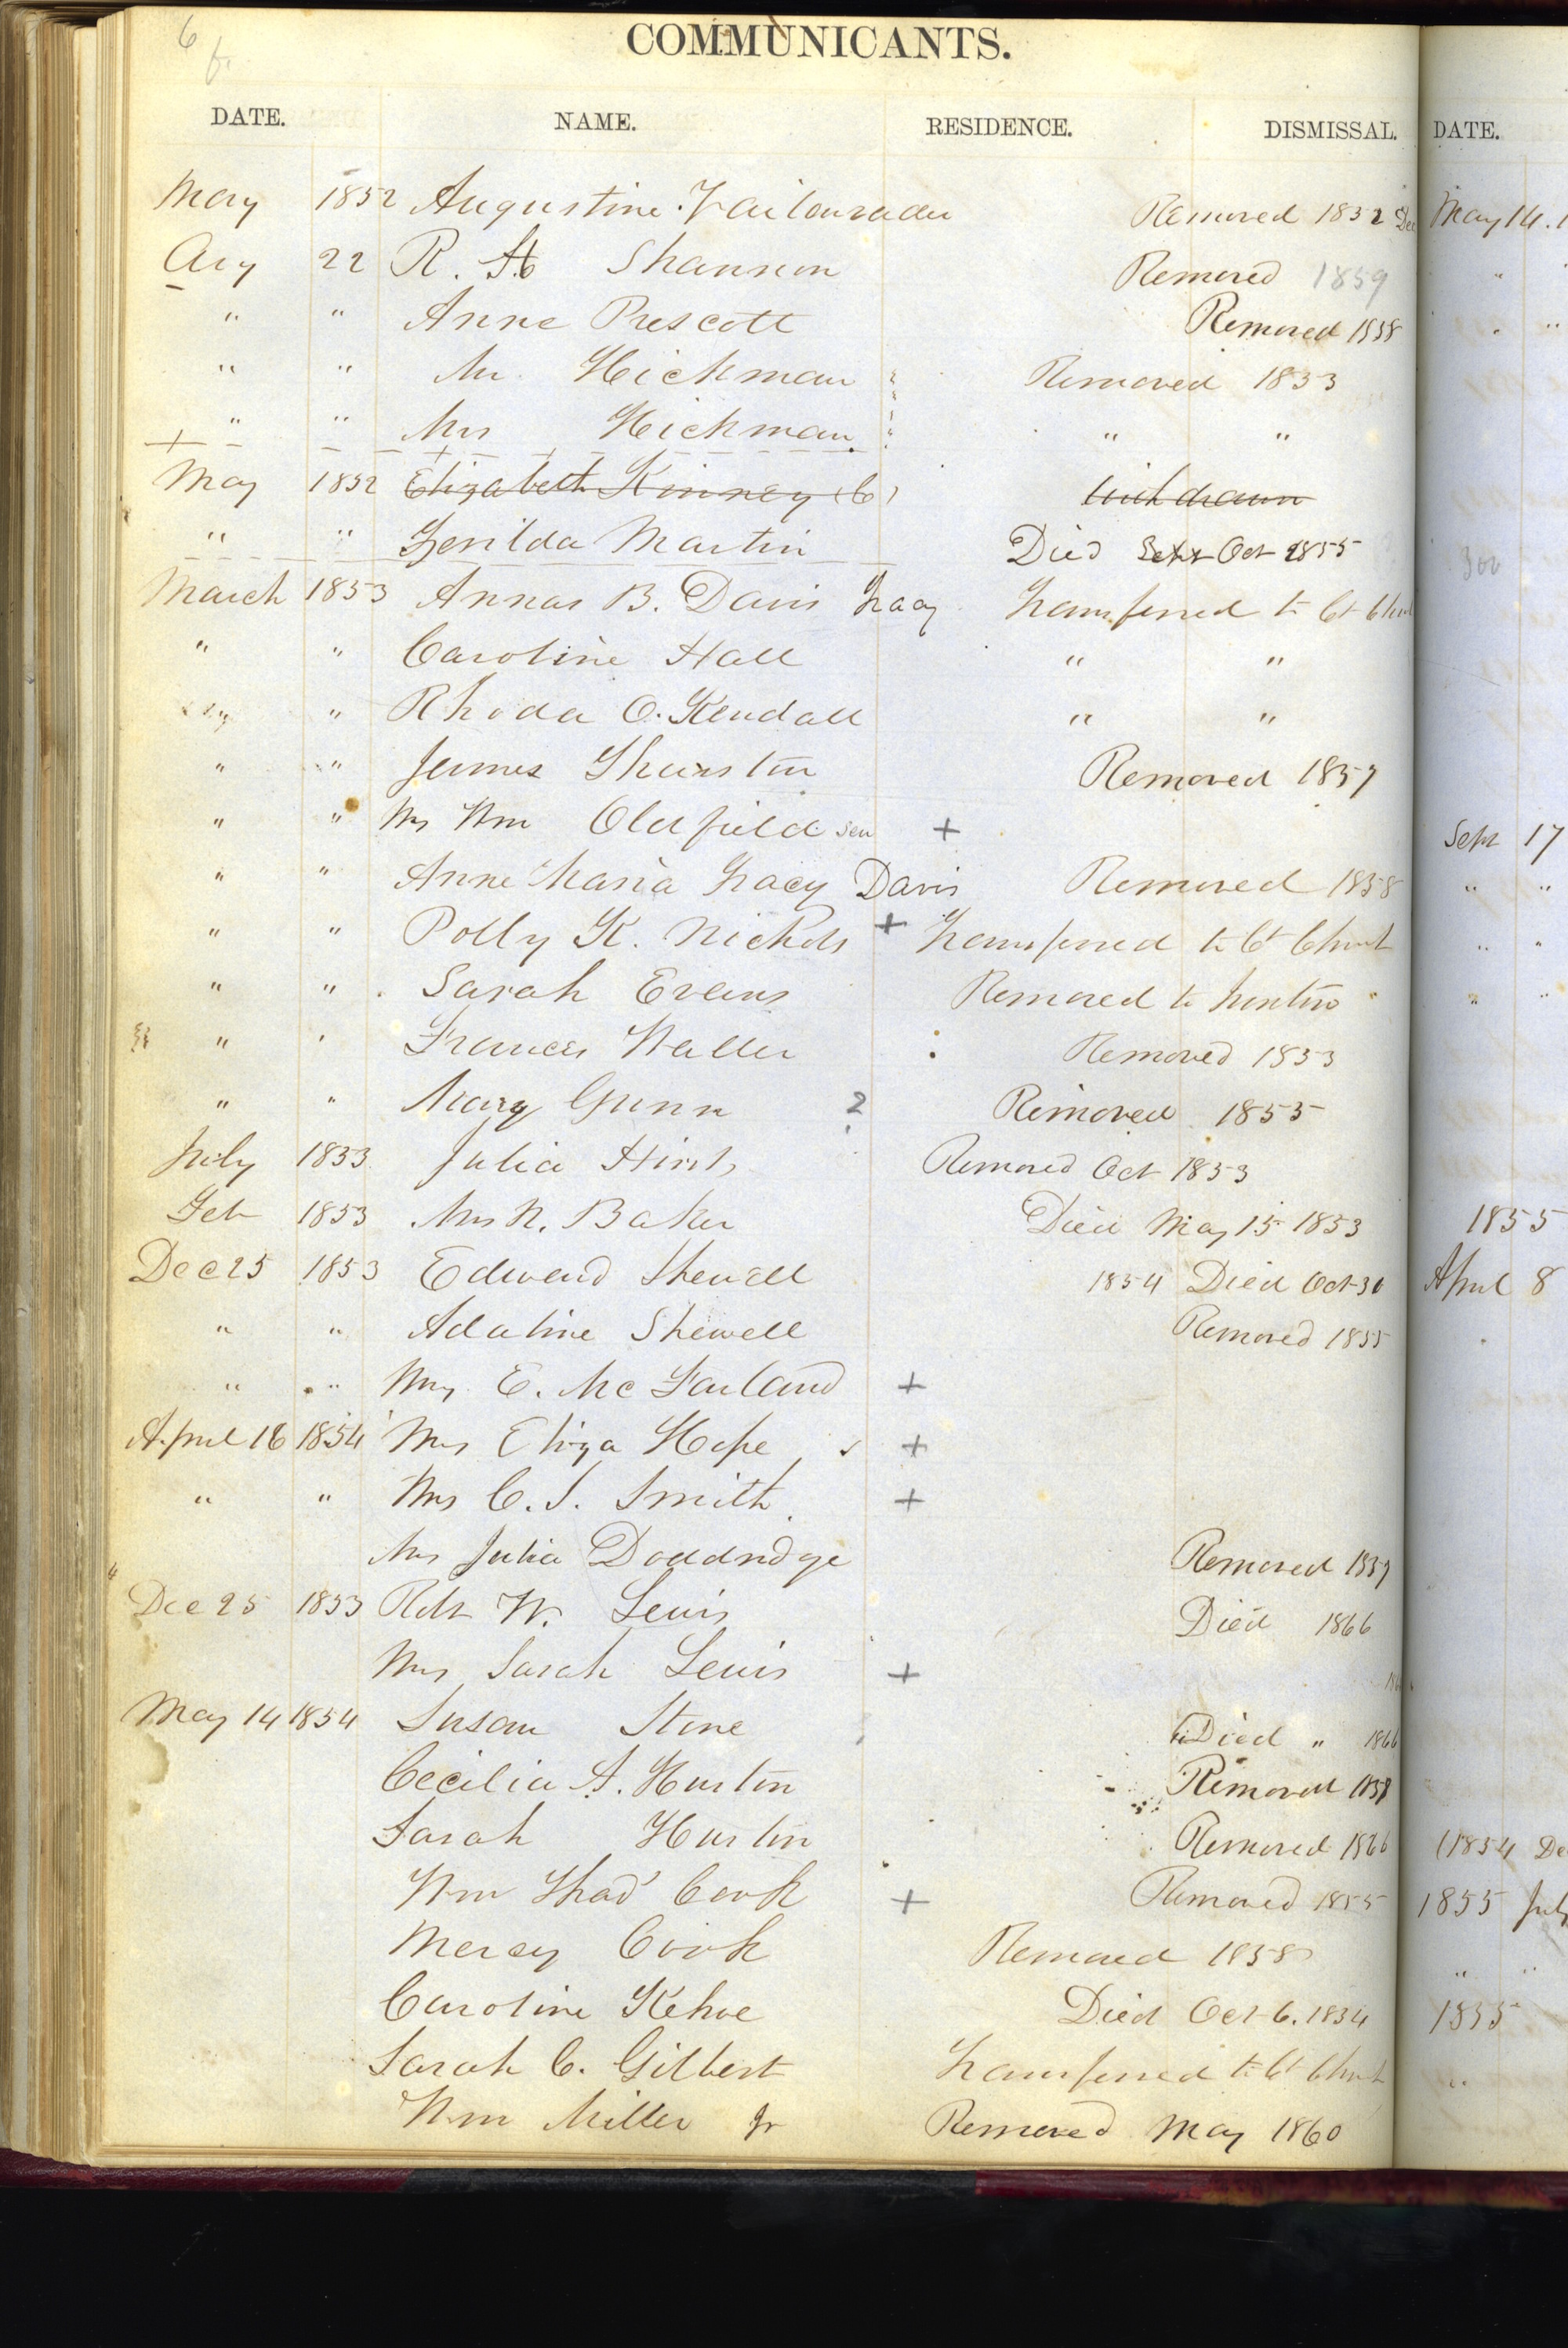 6
COMMUNICANTS.
DATE. NAME. RESIDENCE. DISMISSAL.
May 1852 Augustine Removed 1852 Dec
Aug 22 R. H. Shannon Removed 1859
" " Anne Prescott Removed 1858
" " Mr Hickman Removed 1853
" " Mrs Hickman " "
May 1852 Elizabeth Kinney (C) withdrawn
" " Martin Died Sept Oct 1855
March 1853 Annas B. Davis Tracy Transferred to Ct Chur
" " Caroline Hall " "
" " Rhoda O. Kendall " "
" " James Thurston Removed 1857
" " Mrs Wm Oldfield sen +
" " Anne Maria Tracy Davis Removed 1858
" " Polly K. Nichols + Transferred to Ct Church
" " Sarah Evans Removed to
" " Frances Waller Removed 1853
" " Mary Gunn ? Removed 1855
July 1853 Julia Hirst Removed Oct 1853
Feb 1853 Mrs N. Baker Died May 15 1853
Dec 25 1853 Edward Shewell 1854 Died Oct 30
" " Adaline Shewell Removed 1855
" " Mrs E. McFarland +
April 16 1854 Mrs Eliza Hope +
" " Mrs C. S. Smith +
" Mrs Julia Doddridge Removed 1857
Dec 25 1853 Robt W. Lewis Died 1866
Mrs Sarah Lewis +
May 14 1854 Susan Stone Died " 1866
Cecilia A. Huston Removed 1858
Sarah Huston Removed 1866
Wm Thad Cook + Removed 1855
Mercy Cook Removed 1858
Caroline Kehoe Died Oct 6. 1854
Sarah C. Gilbert Transferred to Ct Church
Wm Miller Jr Removed May 1860
DATE.
May 14.
Sept 17
1855
April 8
(1854 De
1855 July
1855